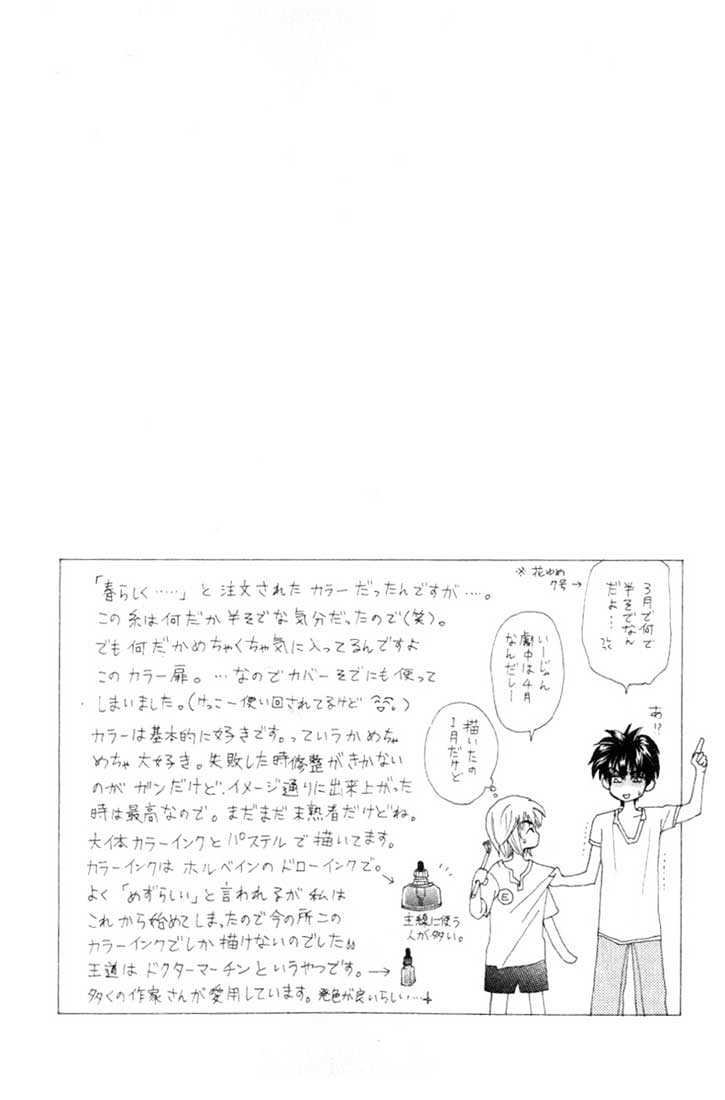 「春らしく……」と注文されたカラーだったんですが…。
この糸は何だか半そでな気分だったので(笑)。
でも何だかめちゃくちゃ気に入ってるんですよ
このカラー扉。…なのでカバーそでにも使って
しまいました。(けっこー使い回されてるけど)
カラーは基本的に好きです。っていうかめちゃ
めちゃ大好き。失敗した時修整がきかない
のがガンだけど、イメージ通りに出来上がった
時は最高なので。まだまだ未熟者だけどね。
大体カラーインクとパステルで描いてます。
カラーインクはホルベインのドローインクで。→
よく「めずらしい」と言われるが私は
これから始めてしまったので今の所この
カラーインクでしか描けないのでした
王道はドクターマーチンというやつです。→
多くの作家さんが愛用しています。発色が良いらしい…
主線に使う
人が多い。
※花ゆめ
7号→
3月で何で
半そでなん
だよ…
いーじゃん
劇中は4月
なんだしー
描いたの
1月だけど
あ!?
E